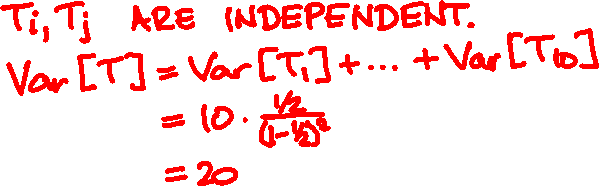 Ti, Tj ARE INDEPENDENT.
Var[T] = Var[T₁] + ... + Var[T₁₀]
= 10 · (1/2)/(1-1/2)²
= 20